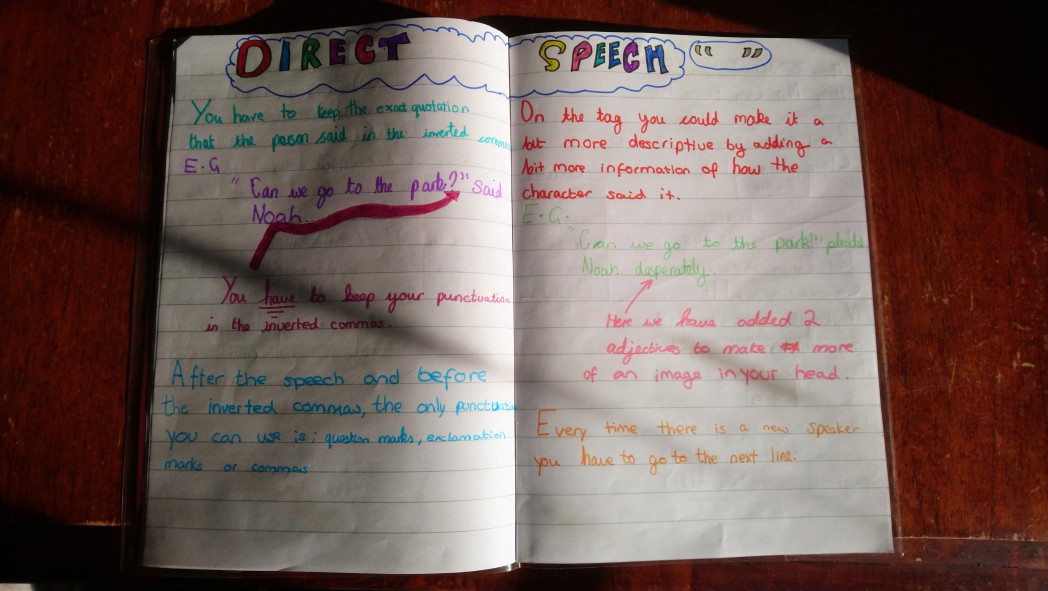 DIRECT SPEECH “ ”
You have to keep the exact quotation
that the person said in the inverted
E.G
“Can we go to the park?” said
Noah.
You have to keep your punctuation
in the inverted commas.
After the speech and before
the inverted commas, the only punctuation
you can use is; question marks, exclamation
marks or commas
On the tag you could make it a
bit more descriptive by adding a
bit more information of how the
character said it.
E.G.
“Can we go to the park!”
Noah desperately.
Here we have added 2
adjectives to make more
of an image in your head.
Every time there is a new speaker
you have to go to the next line.